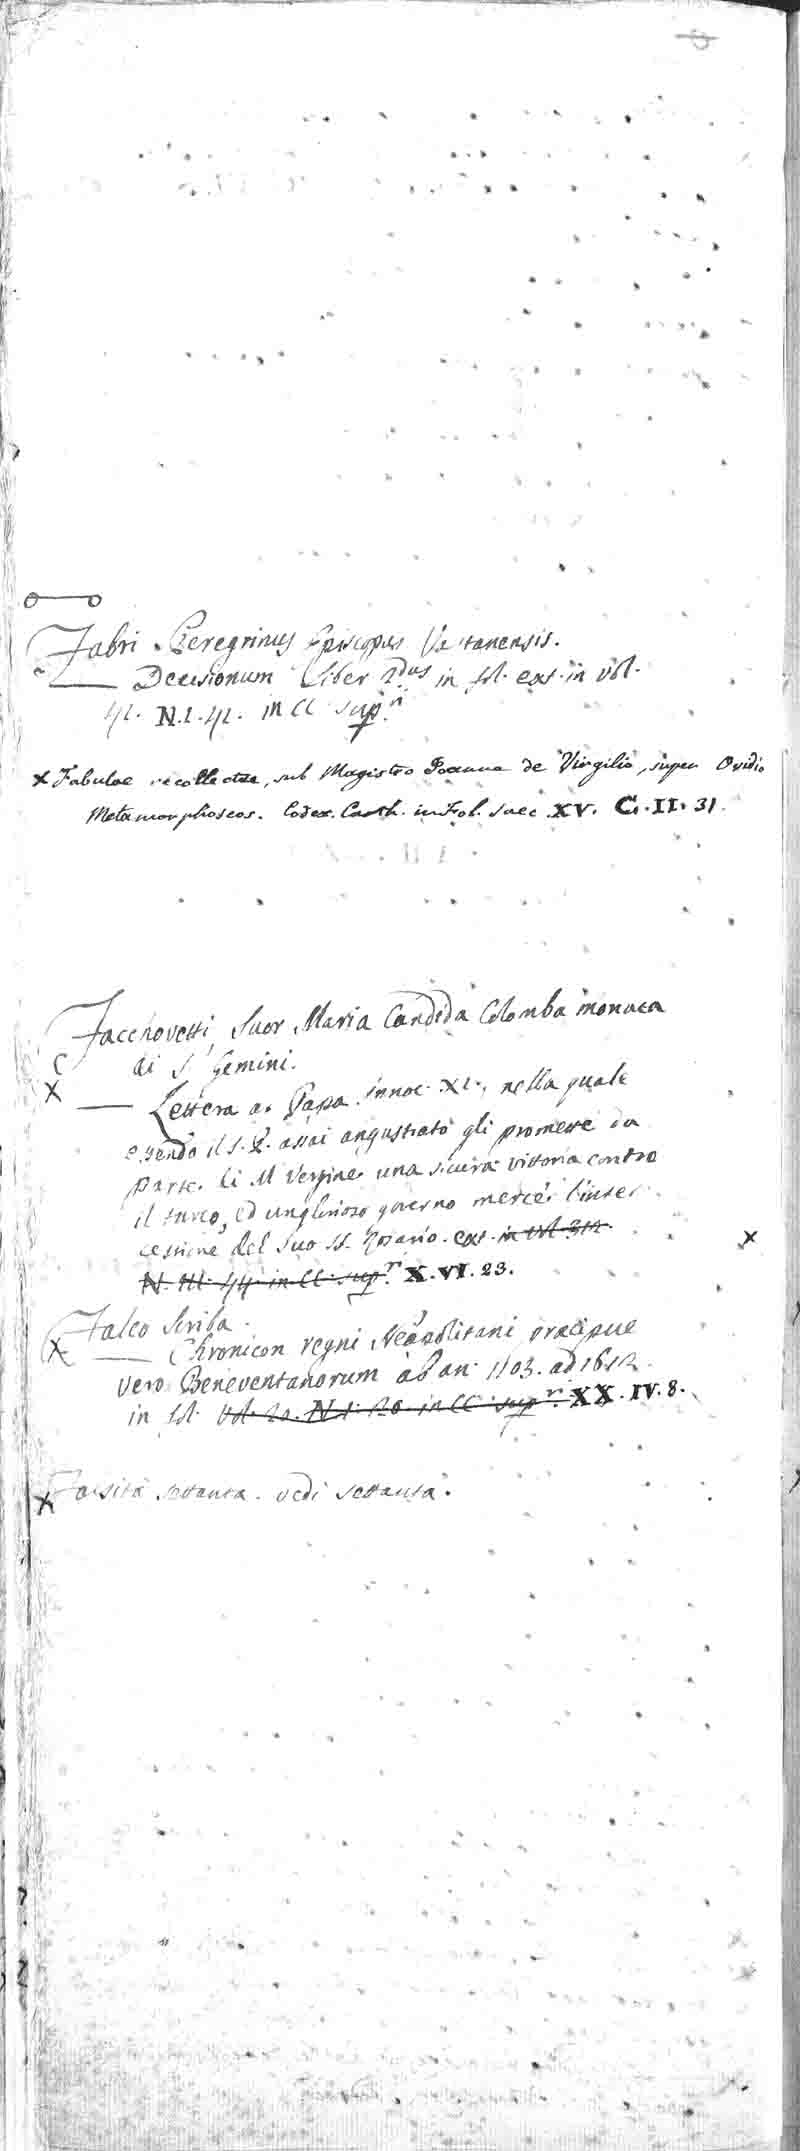 Fabri Peregrinus Episcopus Vestanensis.
— Decisionum Liber 2dus in fol. ext. in vol.
41. N.I.41. in CC. supn.
x Fabulae recollectae, sub Magistro Joanne de Virgilio, super Ovidio
Metamorphoseos. Codex. Carth. in Fol. saec. XV. C. II. 31.
Facchovetti Suor Maria Candida Colomba monaca
di S. Gemini.
X — Lettera a Papa Innoc. XI., nella quale
essendo il S. P. assai angustiato gli promette da
parte di M Vergine una sicura vittoria contro
il turco, ed un glorioso governo mercè l'inter
cessione del suo SS. Rosario. ext. in vol. 312. x
N. III. 44. in CC. supn. X. VI. 23.
Falco Scriba.
X — Chronicon regni Neapolitani praecipue
vero Beneventanorum ab an. 1103. ad 1612.
in fol. vol. 20. N. I. 20. in CC. supn. XX. IV. 8.
X Falsità settanta. vedi settanta.